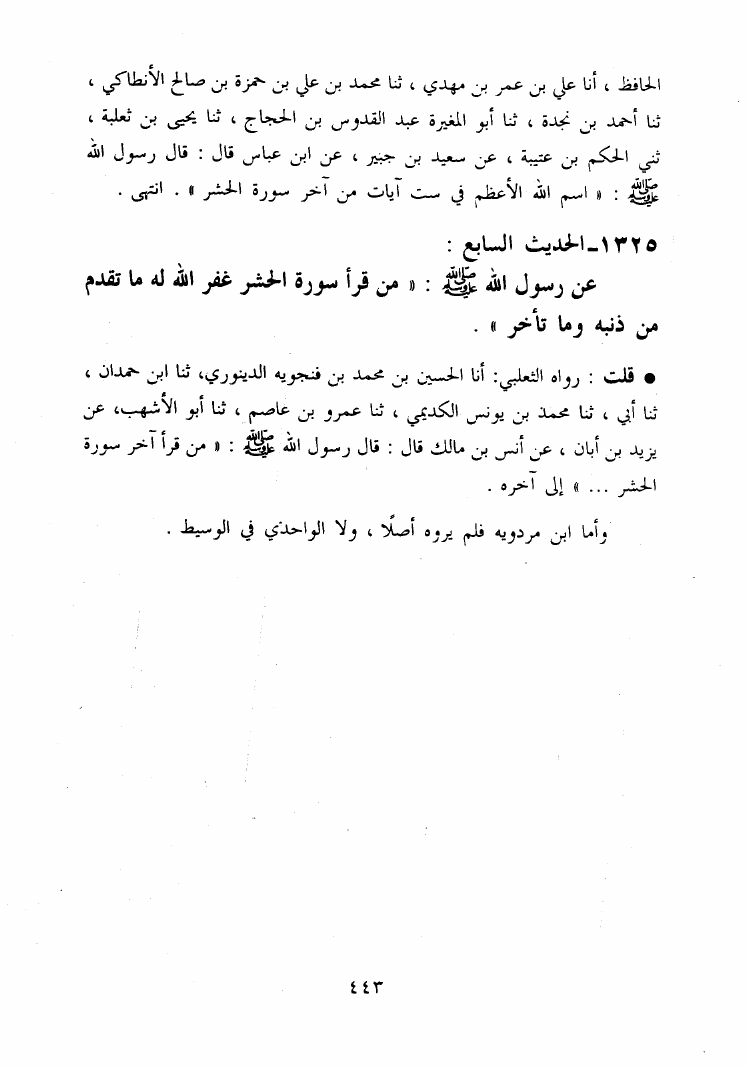 الحافظ ، أنا علي بن عمر بن مهدي ، ثنا محمد بن علي بن حمزة بن صالح الأنطاكي ،
ثنا أحمد بن نجدة ، ثنا أبو المغيرة عبد القدوس بن الحجاج ، ثنا يحيى بن ثعلبة ،
ثني الحكم بن عتيبة ، عن سعيد بن جبير ، عن ابن عباس قال : قال رسول الله
ﷺ : « اسم الله الأعظم في ست آيات من آخر سورة الحشر » . انتهى .
١٣٢٥ـ الحديث السابع :
عن رسول الله ﷺ : « من قرأ سورة الحشر غفر الله له ما تقدم
من ذنبه وما تأخر » .
● قلت : رواه الثعلبي: أنا الحسين بن محمد بن فنجويه الدينوري، ثنا ابن حمدان ،
ثنا أبي ، ثنا محمد بن يونس الكديمي ، ثنا عمرو بن عاصم ، ثنا أبو الأشهب، عن
يزيد بن أبان ، عن أنس بن مالك قال : قال رسول الله ﷺ : « من قرأ آخر سورة
الحشر ... » إلى آخره .
وأما ابن مردويه فلم يروه أصلًا ، ولا الواحدي في الوسيط .
٤٤٣